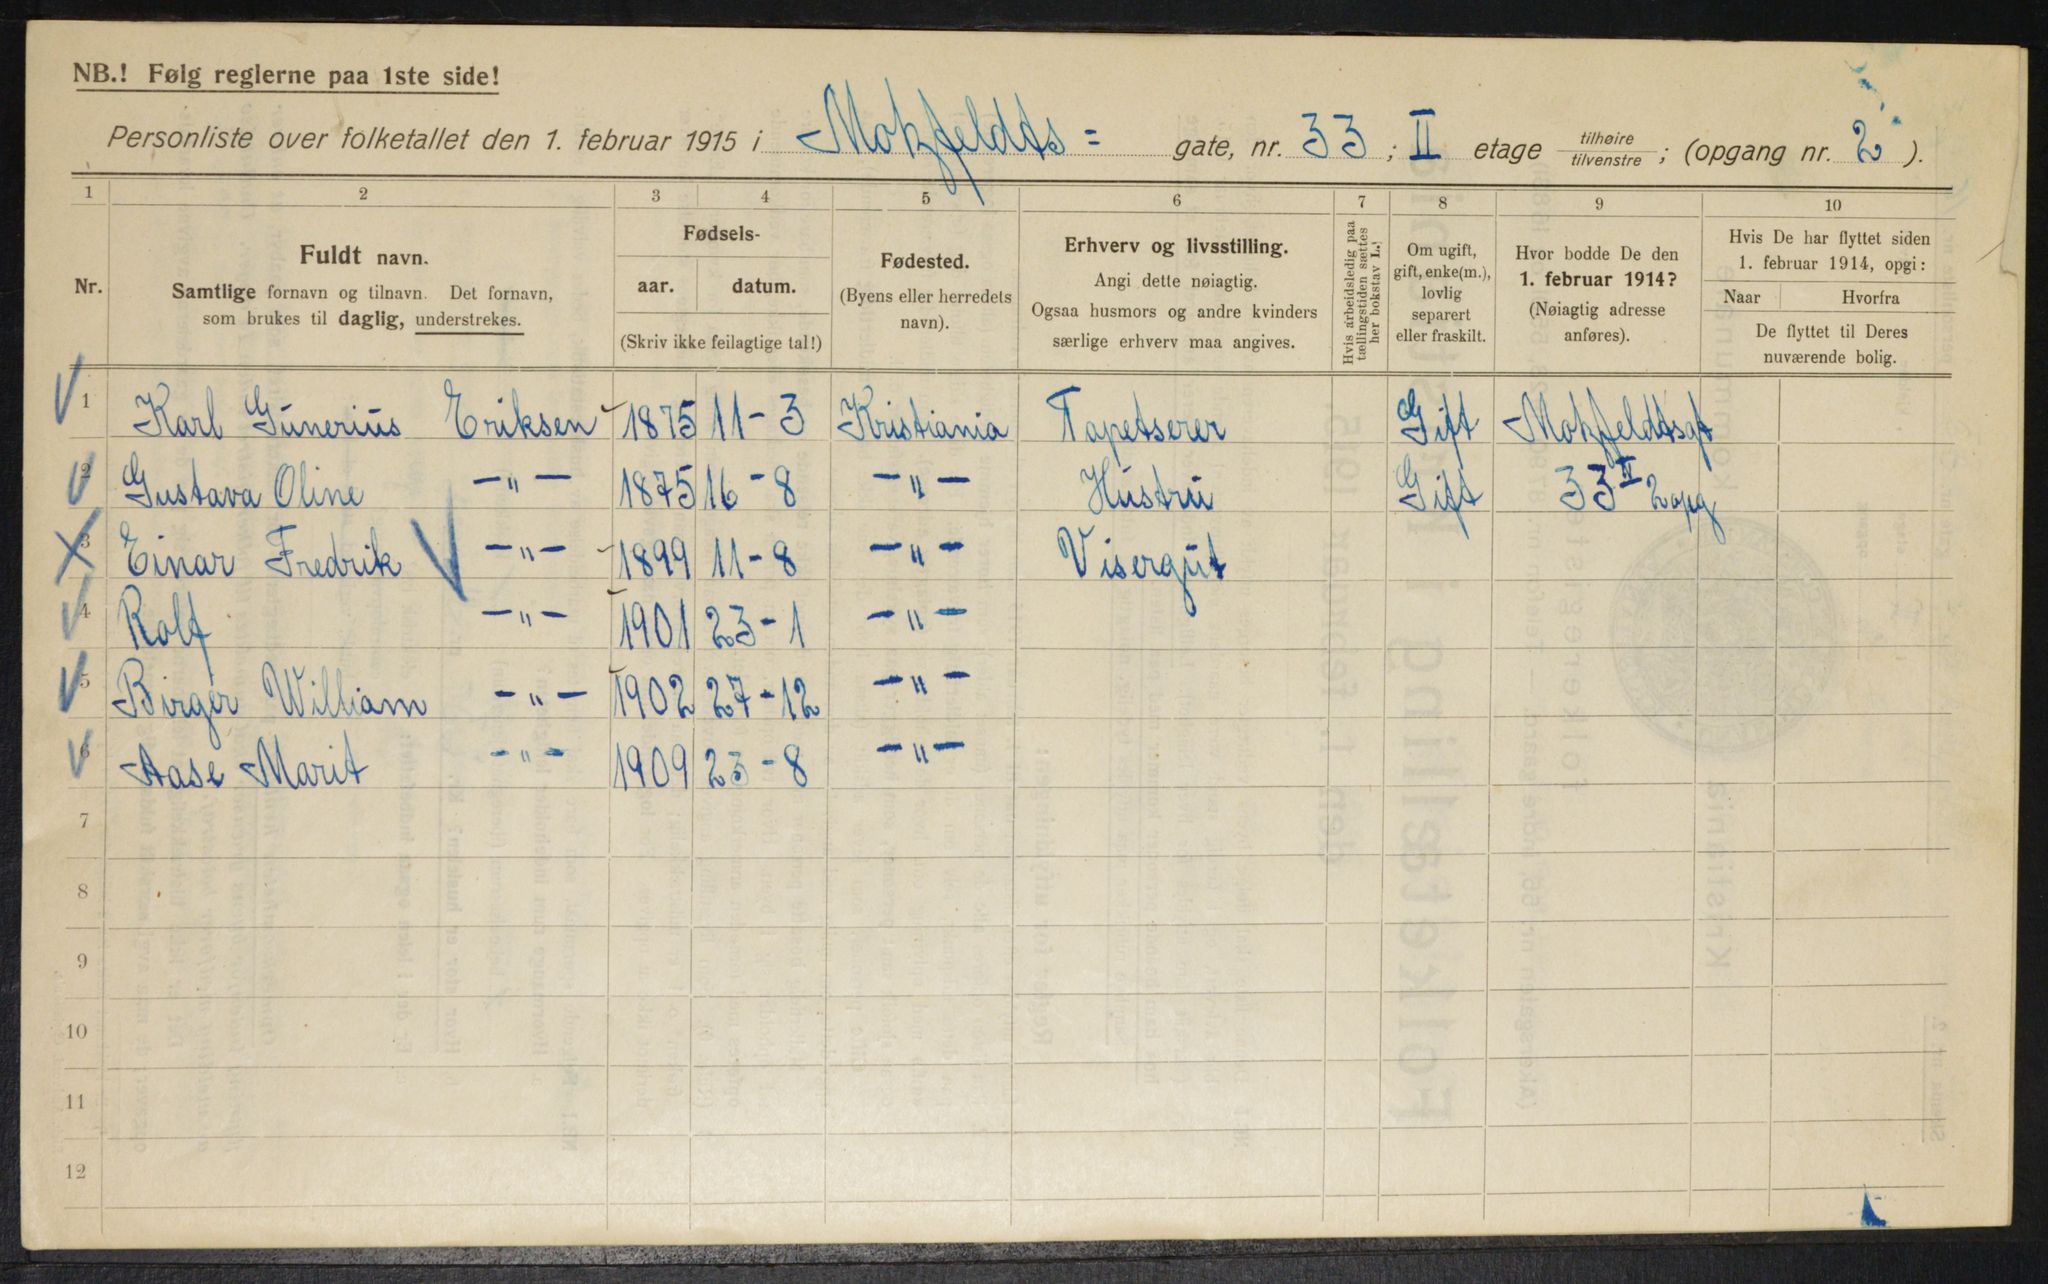 NB.! Følg reglerne paa 1ste side!
Personliste over folketallet den 1. februar 1915 i Motzfeldts= gate, nr. 33 ; II etage tilhøire / tilvenstre ; (opgang nr. 2 ).
1 2 3 4 5 6 7 8 9 10
Nr.
Fuldt navn.
Samtlige fornavn og tilnavn. Det fornavn,
som brukes til daglig, understrekes.
Fødsels-
aar. datum.
(Skriv ikke feilagtige tal!)
Fødested.
(Byens eller herredets
navn).
Erhverv og livsstilling.
Angi dette nøiagtig.
Ogsaa husmors og andre kvinders
særlige erhverv maa angives.
Hvis arbeidsledig paa
tællingstiden sættes
her bokstav L.!
Om ugift,
gift, enke(m.),
lovlig
separert
eller fraskilt.
Hvor bodde De den
1. februar 1914?
(Nøiagtig adresse
anføres).
Hvis De har flyttet siden
1. februar 1914, opgi:
Naar Hvorfra
De flyttet til Deres
nuværende bolig.
1 Karl Gunerius Eriksen 1875 11-3 Kristiania Tapetserer Gift Motzfeldtsgt
2 Gustava Oline -"- 1875 16-8 -"- Hustru Gift 33 II 2 opg
3 Einar Fredrik -"- 1899 11-8 -"- Visergut
4 Rolf -"- 1901 23-1 -"-
5 Birger William -"- 1902 27-12 -"-
6 Aase Marit -"- 1909 23-8 -"-
7
8
9
10
11
12